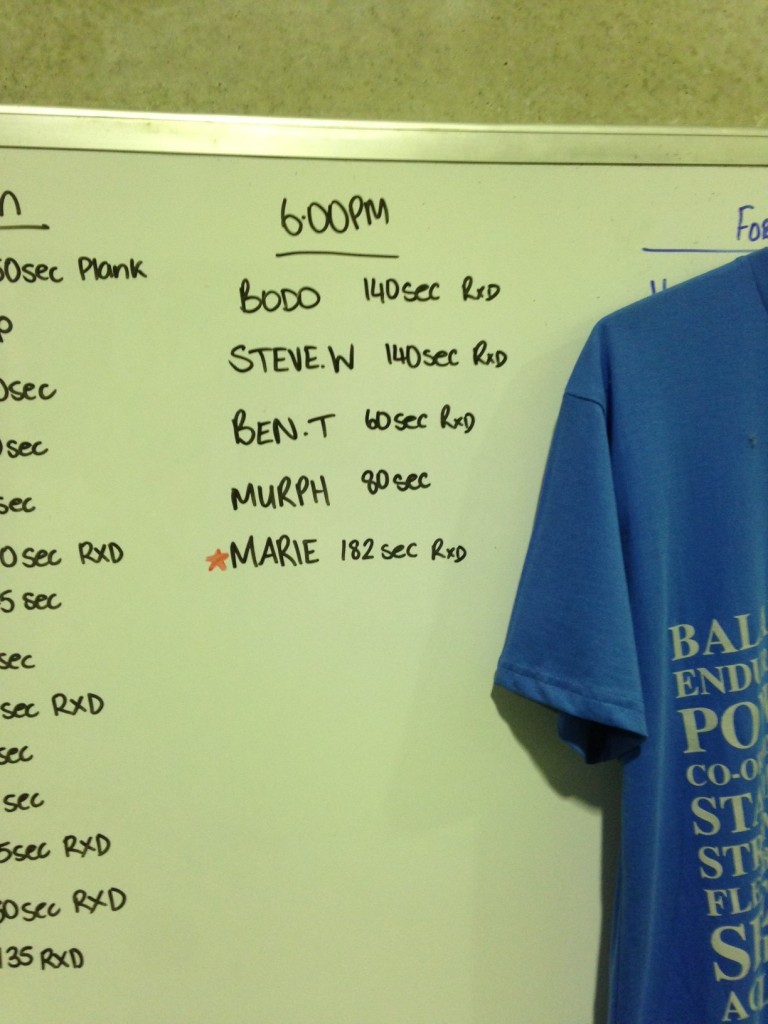 6.00PM
BODO 140sec RxD
STEVE.W 140sec RxD
BEN.T 60sec RxD
MURPH 80sec
MARIE 182sec RxD
n
50sec Plank
P
0sec
0sec
sec
0sec RXD
5 sec
sec
sec RXD
sec
sec
5sec RXD
50sec RXD
135 RXD
FOR
BALA
ENDU
POW
CO-O
STA
STR
FLE
SP